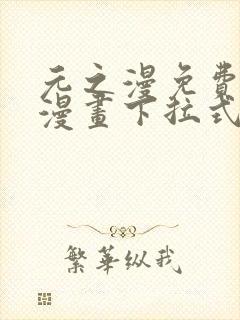 元之漫免費
漫畫下拉式
繁華纵我